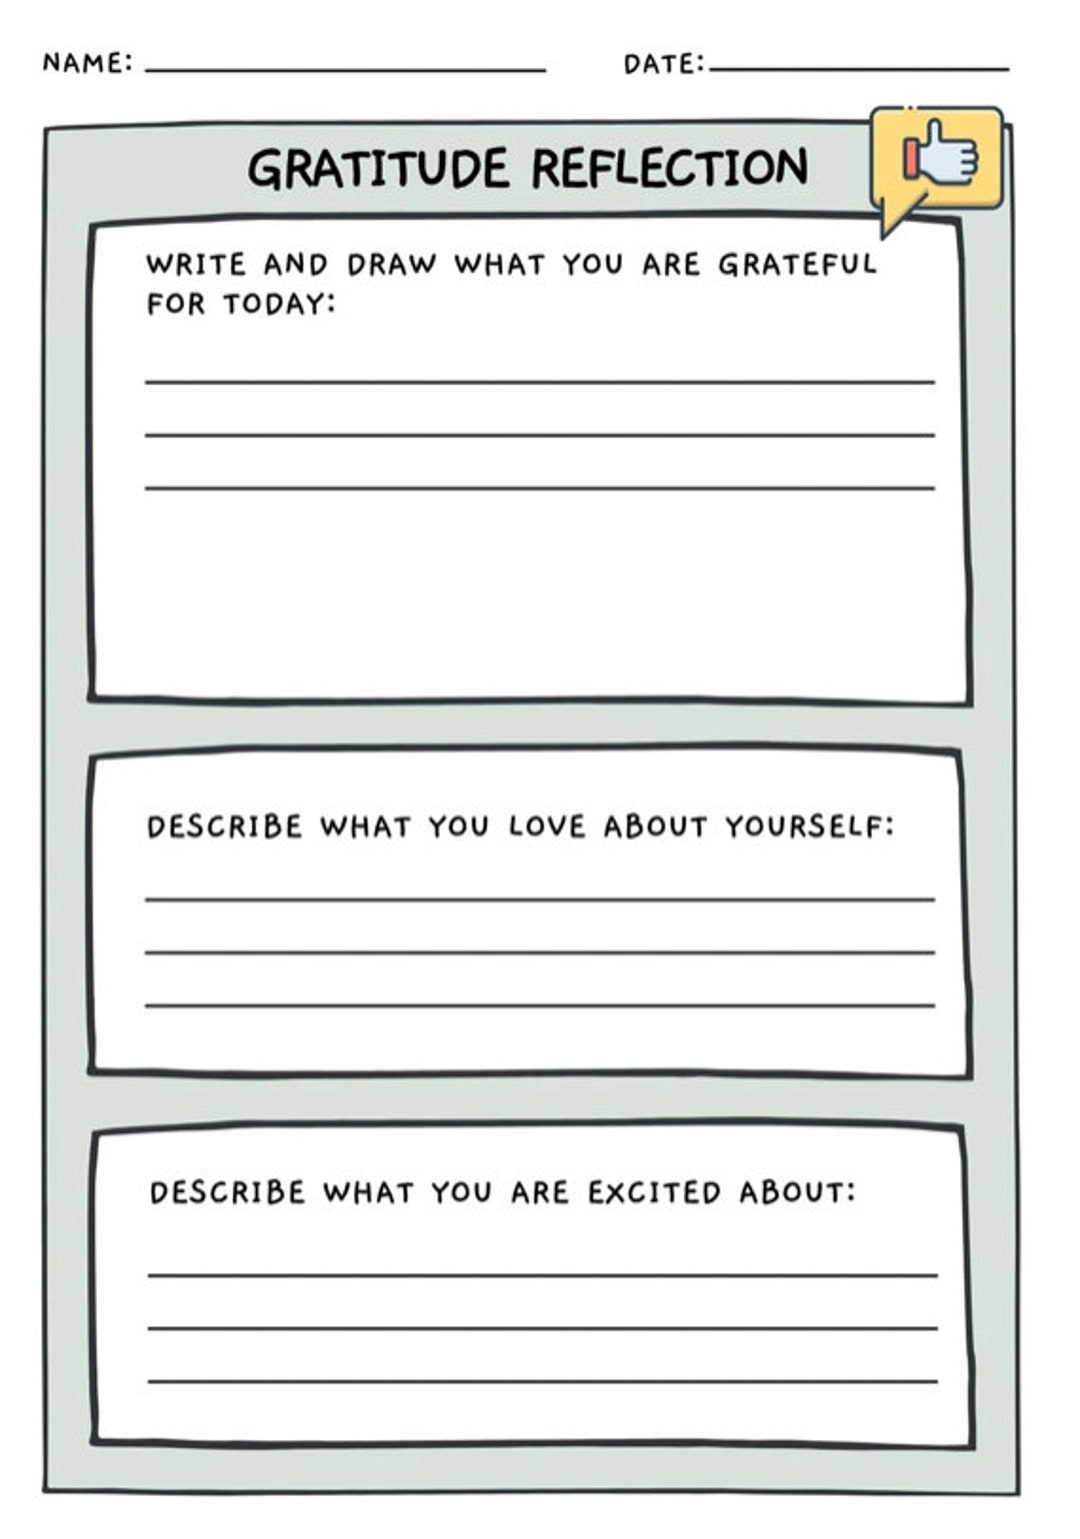 NAME: DATE:
GRATITUDE REFLECTION
WRITE AND DRAW WHAT YOU ARE GRATEFUL
FOR TODAY:
DESCRIBE WHAT YOU LOVE ABOUT YOURSELF:
DESCRIBE WHAT YOU ARE EXCITED ABOUT: